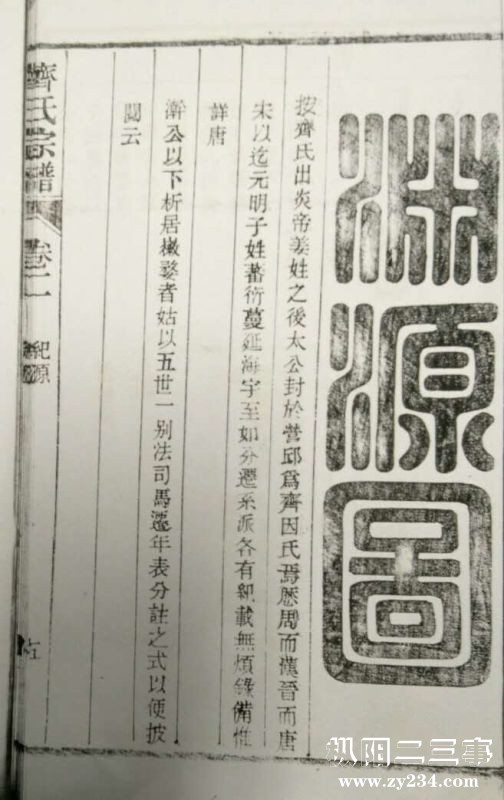 淵源圖
按齊氏出炎帝姜姓之後太公封於營邱爲齊因氏焉歷周而漢晉而唐
宋以迄元明子姓蕃衍蔓延海宇至如分遷系派各有紀載無煩錄備惟
詳唐
澣公以下析居徽婺者姑以五世一别法司馬遷年表分註之式以便披
閱云
齊氏宗譜
卷二
紀源
枞阳二三事
www.zy234.com